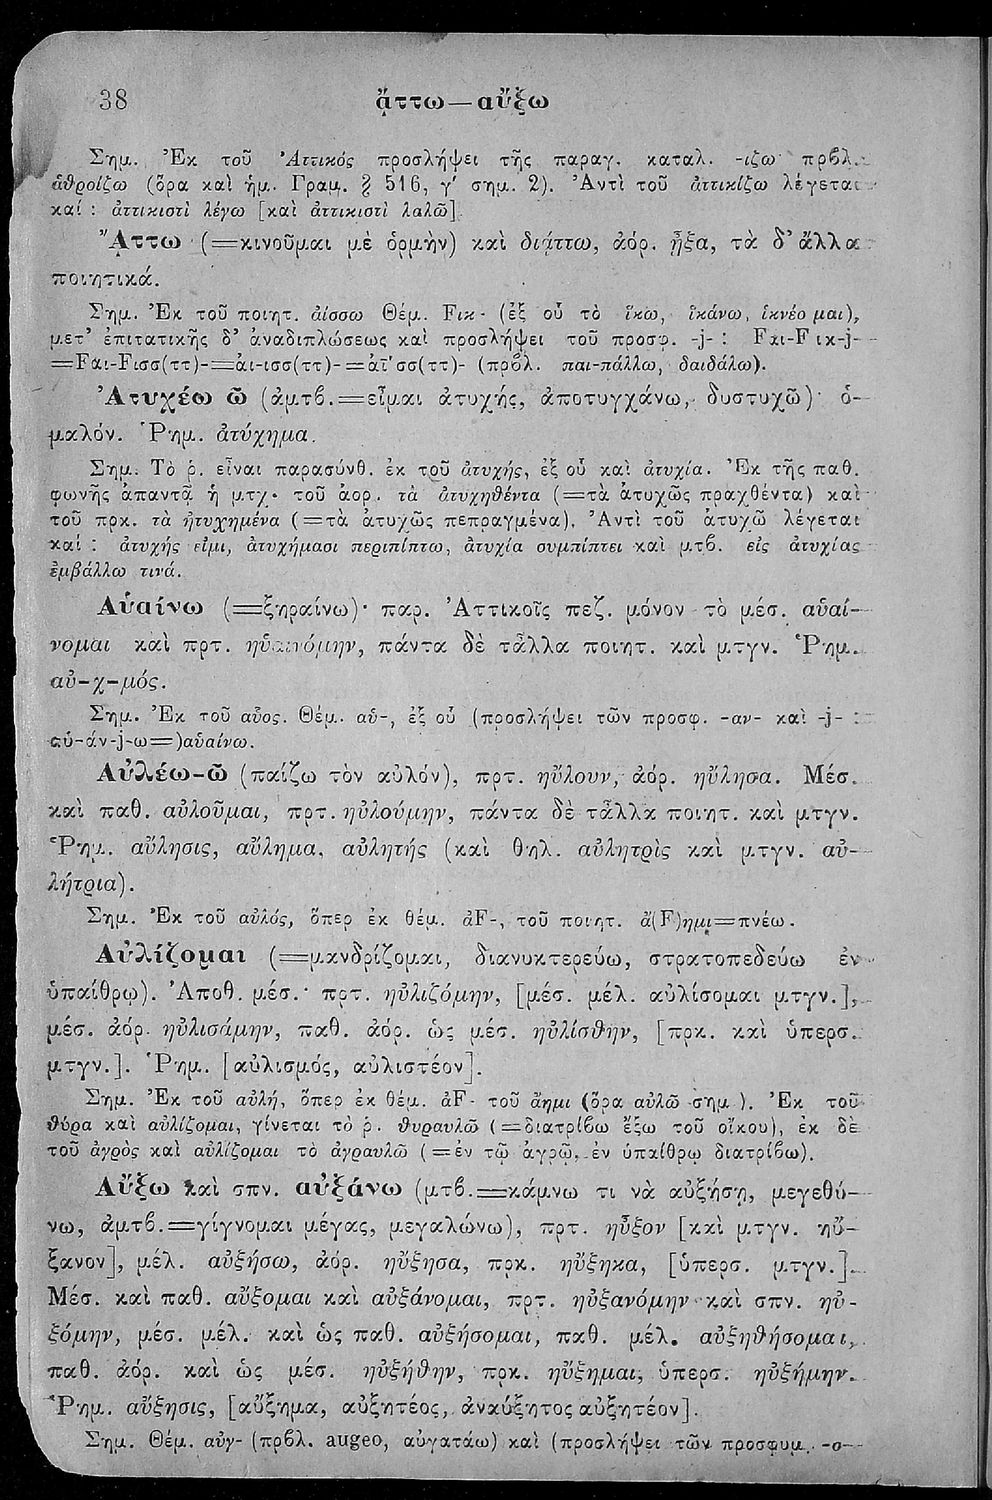 38 ᾄττω — αὔξω
Σημ. Ἐκ τοῦ Ἀττικός προσλήψει τῆς παραγ. καταλ. -ιζω πρβλ.
ἀθροίζω (ὅρα καὶ ἡμ. Γραμ. § 516, γ′ σημ. 2). Ἀντὶ τοῦ ἀττικίζω λέγεται
καί : ἀττικιστὶ λέγω [καὶ ἀττικιστὶ λαλῶ].
ᾌττω (=κινοῦμαι μὲ ὁρμὴν) καὶ διᾴττω, ἀόρ. ᾖξα, τὰ δ’ ἄλλα
ποιητικά.
Σημ. Ἐκ τοῦ ποιητ. ἀίσσω Θέμ. Fικ- (ἐξ οὗ τὸ ἵκω, ἱκάνω, ἱκνέομαι),
μετ’ ἐπιτατικῆς δ’ ἀναδιπλώσεως καὶ προσλήψει τοῦ προσφ. -j- : Fαι-Fικ-j-
=Fαι-Fισσ(ττ)-=ἀι-ισσ(ττ)-=ἀΐσσ(ττ)- (πρβλ. παι-πάλλω, δαιδάλω).
Ἀτυχέω ῶ (ἀμτβ.=εἶμαι ἀτυχής, ἀποτυγχάνω, δυστυχῶ)· ὁ-
μαλόν. Ῥημ. ἀτύχημα.
Σημ. Τὸ ῥ. εἶναι παρασύνθ. ἐκ τοῦ ἀτυχής, ἐξ οὗ καὶ ἀτυχία. Ἐκ τῆς παθ.
φωνῆς ἀπαντᾷ ἡ μτχ. τοῦ ἀορ. τὰ ἀτυχηθέντα (=τὰ ἀτυχῶς πραχθέντα) καὶ
τοῦ πρκ. τὰ ἠτυχημένα (=τὰ ἀτυχῶς πεπραγμένα). Ἀντὶ τοῦ ἀτυχῶ λέγεται
καί : ἀτυχής εἰμι, ἀτυχήμασι περιπίπτω, ἀτυχία συμπίπτει καὶ μτβ. εἰς ἀτυχίας
ἐμβάλλω τινά.
Αὑαίνω (=ξηραίνω)· παρ. Ἀττικοῖς πεζ. μόνον τὸ μέσ. αὑαί-
νομαι καὶ πρτ. ηὑαινόμην, πάντα δὲ τἆλλα ποιητ. καὶ μτγν. Ῥημ.
αὐ-χ-μός.
Σημ. Ἐκ τοῦ αὖος. Θέμ. αὑ-, ἐξ οὗ (προσλήψει τῶν προσφ. -αν- καὶ -j- :
αὑ-άν-j-ω=)αὑαίνω.
Αὐλέω-ῶ (παίζω τὸν αὐλόν), πρτ. ηὔλουν, ἀόρ. ηὔλησα. Μέσ.
καὶ παθ. αὐλοῦμαι, πρτ. ηὐλούμην, πάντα δὲ τἆλλα ποιητ. καὶ μτγν.
Ῥημ. αὔλησις, αὔλημα, αὐλητής (καὶ θηλ. αὐλητρὶς καὶ μτγν. αὐ-
λήτρια).
Σημ. Ἐκ τοῦ αὐλός, ὅπερ ἐκ θέμ. ἀF-, τοῦ ποιητ. ἄ(F)ημι=πνέω.
Αὐλίζομαι (=μανδρίζομαι, διανυκτερεύω, στρατοπεδεύω ἐν
ὑπαίθρῳ). Ἀποθ. μέσ.· πρτ. ηὐλιζόμην, [μέσ. μέλ. αὐλίσομαι μτγν.],
μέσ. ἀόρ. ηὐλισάμην, παθ. ἀόρ. ὡς μέσ. ηὐλίσθην, [πρκ. καὶ ὑπερσ.
μτγν.]. Ῥημ. [αὐλισμός, αὐλιστέον].
Σημ. Ἐκ τοῦ αὐλή, ὅπερ ἐκ θέμ. ἀF- τοῦ ἄημι (ὅρα αὐλῶ σημ.). Ἐκ τοῦ
θύρα καὶ αὐλίζομαι, γίνεται τὸ ῥ. θυραυλῶ (=διατρίβω ἔξω τοῦ οἴκου), ἐκ δὲ
τοῦ ἀγρὸς καὶ αὐλίζομαι τὸ ἀγραυλῶ (=ἐν τῷ ἀγρῷ, ἐν ὑπαίθρῳ διατρίβω).
Αὔξω καὶ σπν. αὐξάνω (μτβ.=κάμνω τι νὰ αὐξήσῃ, μεγεθύ-
νω, ἀμτβ.=γίγνομαι μέγας, μεγαλώνω), πρτ. ηὖξον [καὶ μτγν. ηὔ-
ξανον], μέλ. αὐξήσω, ἀόρ. ηὔξησα, πρκ. ηὔξηκα, [ὑπερσ. μτγν.].
Μέσ. καὶ παθ. αὔξομαι καὶ αὐξάνομαι, πρτ. ηὐξανόμην καὶ σπν. ηὐ-
ξόμην, μέσ. μέλ. καὶ ὡς παθ. αὐξήσομαι, παθ. μέλ. αὐξηθήσομαι,
παθ. ἀόρ. καὶ ὡς μέσ. ηὐξήθην, πρκ. ηὔξημαι, ὑπερσ. ηὐξήμην.
Ῥημ. αὔξησις, [αὔξημα, αὐξητέος, ἀναύξητος αὐξητέον].
Σημ. Θέμ. αὐγ- (πρβλ. augeo, αὐγατάω) καὶ (προσλήψει τῶν προσφυμ. -σ-